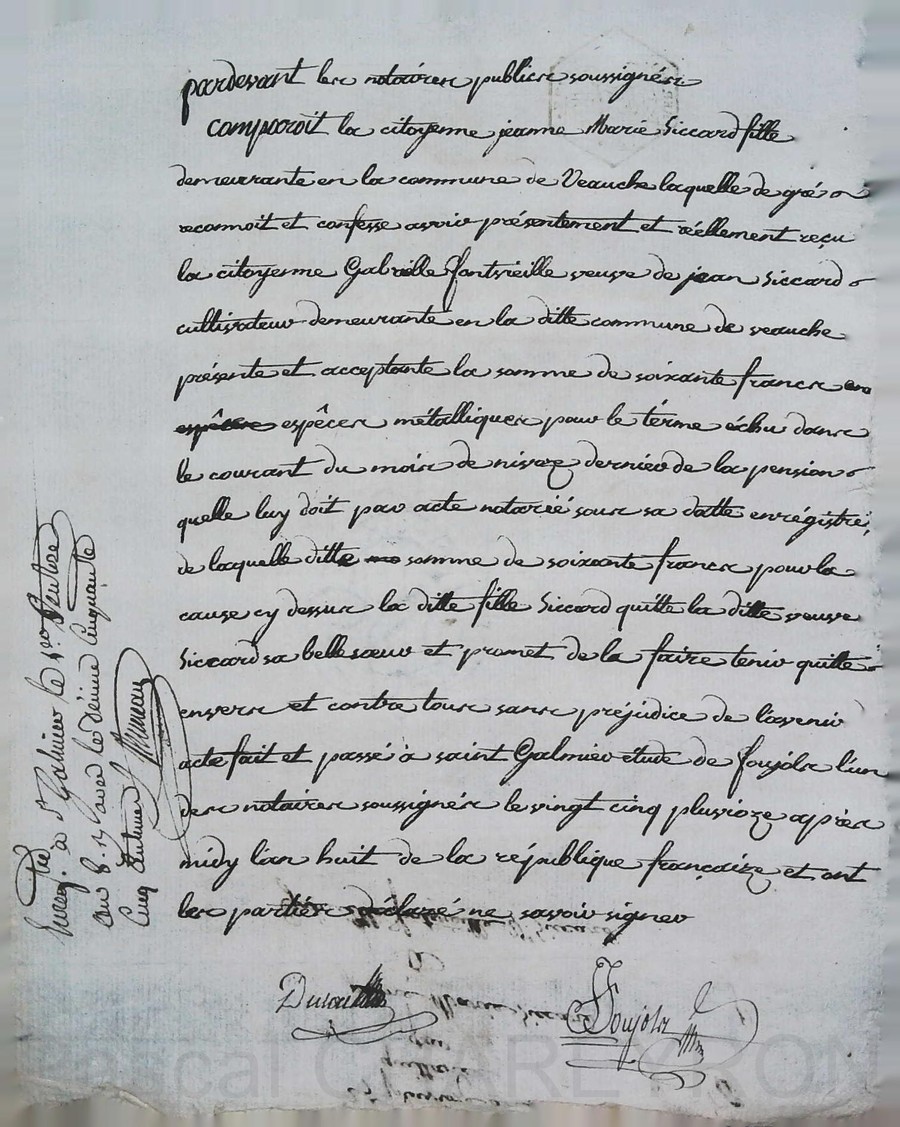 pardevant les notaires publics soussignés
comparoit la citoyenne jeanne Marie Siccard fille
demeurante en la commune de Veauche laquelle de gré
reconnoit et confesse avoir présentement et réellement reçu
la citoyenne Gabrielle fontvieille veuve de jean Siccard
cultivateur demeurante en la ditte commune de veauche
présente et acceptante la somme de soixante francs en
espêces espêces métalliques pour le térme échu dans
le courant du mois de nivoze dernier de la pension
quelle luy doit par acte notarié sous sa datte enrégistré,
de laquelle ditte somme de soixante francs pour la
cause cy dessus la ditte fille Siccard quitte la ditte veuve
Siccard sa belle sœur et promet de la faire tenir quitte
envers et contre tous sans préjudice de l'avenir
acte fait et passé à saint Galmier étude de foujols l'un
des notaires soussignés le vingt cinq pluvioze après
midy l'an huit de la république françaize et ont
les parties déclaré ne savoir signer
Foujols
Enreg.tré à St Galmier le 1er Ventose
an 8. Reçu avec le décime Cinquante
Cinq Centimes
Pascal CHAREYRON